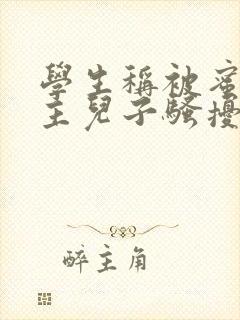 學生稱被蜜
主兒子騷擾
醉主角